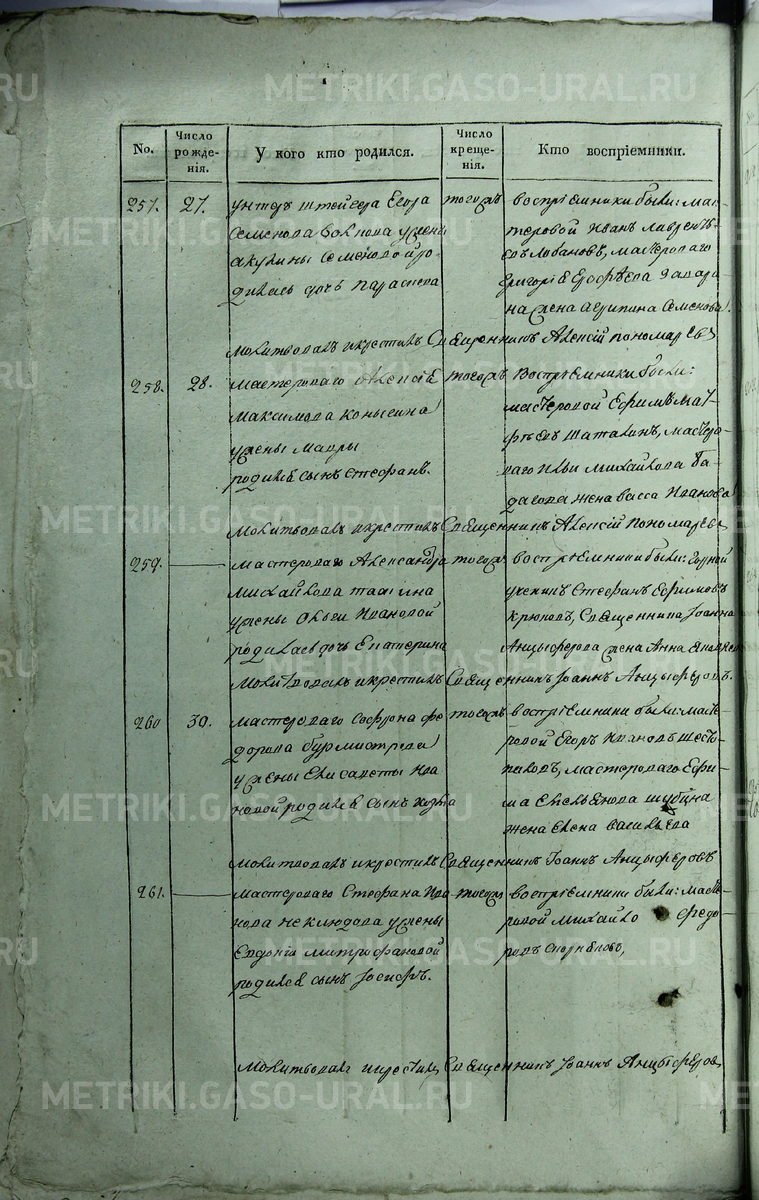 METRIKI.GASO-URAL.RU
No.
Число рожденія.
У кого кто родился.
Число крещенія.
Кто воспріемники.
257.
27.
унтеръ штейгера Егора
Семенова Волкова у жены
акулины Семеновой ро-
дилась дочь Параскева
тогожъ
воспріемники были: мас-
теровой Иванъ Лаврентъ-
евъ Лобановъ, мастероваго
Григорія Ерофѣева
на жена агрипина Семенова
молитвовалъ и крестилъ Священникъ Алексій Пономаревъ
258.
28.
мастероваго Алексія
Максимова
у жены Мавры
родился сынъ Стефанъ.
тогожъ
Воспріемники были:
мастеровой Ефимъ Мат-
фѣевъ Шаталинъ, мастеро-
ваго Ильи Михайлова
жена Васса Иванова
молитвовалъ и крестилъ Священникъ Алексій Пономаревъ
259.
мастероваго Александра
Михайлова
у жены Ольги Ивановой
родилась дочь Екатерина
тогожъ
воспріемники были: горной
ученикъ Стефанъ Ефимовъ
Крюковъ, Священника Іоанна
Анцыферова жена Анна
молитвовалъ и крестилъ Священникъ Іоаннъ Анцыферовъ.
260
30.
мастероваго Софрона Фе-
дорова Бурмистрова
у жены Елисаветы Ива-
новой родился сынъ Козма
тогожъ
воспріемники были: масте-
ровой Егоръ Ивановъ Шесто-
паловъ, мастероваго Ефи-
ма Емельянова Шубина
жена Елена Васильева
молитвовалъ и крестилъ Священникъ Іоаннъ Анцыферовъ
261.
мастероваго Стефана Ива-
нова Неклюдова у жены
Евдокіи Митрофановой
родился сынъ Іосифъ.
тогожъ
воспріемники были: масте-
ровой Михайло Федо-
ровъ
молитвовалъ и крестилъ Священникъ Іоаннъ Анцыферовъ